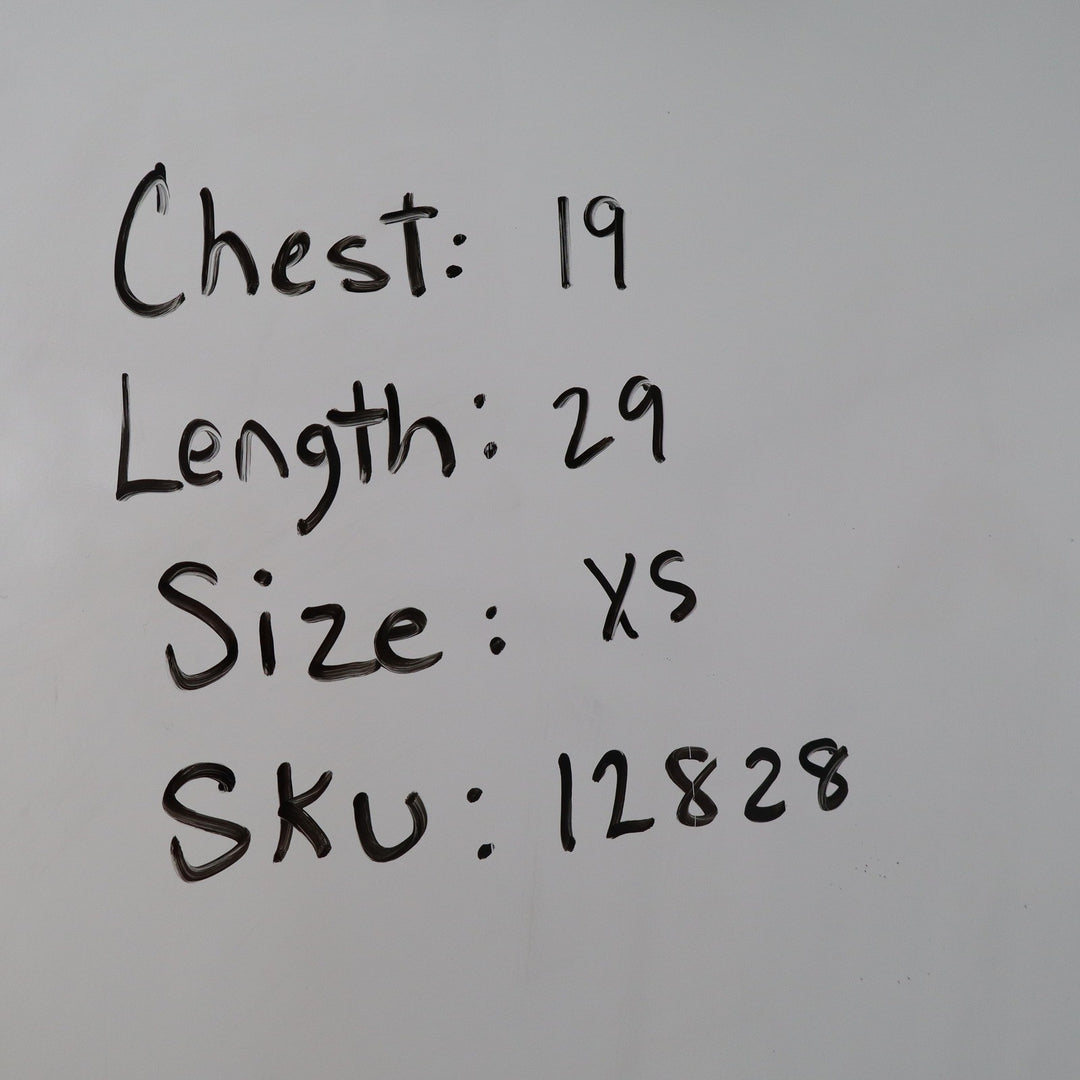 Chest: 19
Length: 29
Size: XS
SKU: 12828